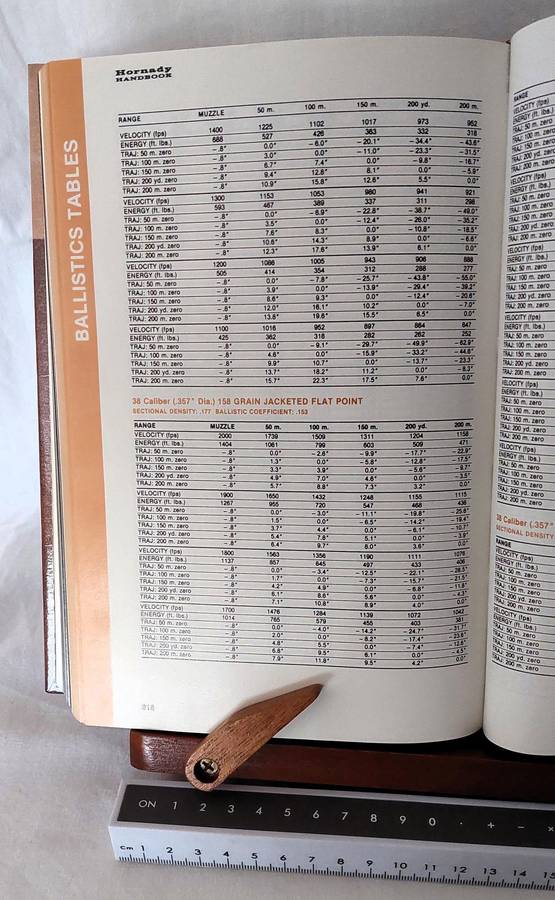 Hornady
HANDBOOK
BALLISTICS TABLES
RANGE MUZZLE 50 m. 100 m. 150 m. 200 yd. 200 m.
VELOCITY (fps) 1400 1225 1102 1017 973 952
ENERGY (ft. lbs.) 688 527 426 363 332 318
TRAJ: 50 m. zero –.8" 0.0" –6.0" –20.1" –34.4" –43.6"
TRAJ: 100 m. zero –.8" 3.0" 0.0" –11.0" –23.3" –31.5"
TRAJ: 150 m. zero –.8" 6.7" 7.4" 0.0" –9.8" –16.7"
TRAJ: 200 yd. zero –.8" 9.4" 12.8" 8.1" 0.0" –5.9"
TRAJ: 200 m. zero –.8" 10.9" 15.8" 12.6" 5.5" 0.0"
VELOCITY (fps) 1300 1153 1053 980 941 921
ENERGY (ft. lbs.) 593 467 389 337 311 298
TRAJ: 50 m. zero –.8" 0.0" –6.9" –22.8" –38.7" –49.0"
TRAJ: 100 m. zero –.8" 3.5" 0.0" –12.4" –26.0" –35.2"
TRAJ: 150 m. zero –.8" 7.6" 8.3" 0.0" –10.8" –18.5"
TRAJ: 200 yd. zero –.8" 10.6" 14.3" 8.9" 0.0" –6.6"
TRAJ: 200 m. zero –.8" 12.3" 17.6" 13.9" 6.1" 0.0"
VELOCITY (fps) 1200 1086 1005 943 906 888
ENERGY (ft. lbs.) 505 414 354 312 288 277
TRAJ: 50 m. zero –.8" 0.0" –7.8" –25.7" –43.8" –55.0"
TRAJ: 100 m. zero –.8" 3.9" 0.0" –13.9" –29.4" –39.2"
TRAJ: 150 m. zero –.8" 8.6" 9.3" 0.0" –12.4" –20.6"
TRAJ: 200 yd. zero –.8" 12.0" 16.1" 10.2" 0.0" –7.0"
TRAJ: 200 m. zero –.8" 13.8" 19.6" 15.5" 6.5" 0.0"
VELOCITY (fps) 1100 1016 952 897 864 847
ENERGY (ft. lbs.) 425 362 318 282 262 252
TRAJ: 50 m. zero –.8" 0.0" –9.1" –29.7" –49.9" –62.9"
TRAJ: 100 m. zero –.8" 4.6" 0.0" –15.9" –33.2" –44.6"
TRAJ: 150 m. zero –.8" 9.9" 10.7" 0.0" –13.7" –23.3"
TRAJ: 200 yd. zero –.8" 13.7" 18.2" 11.2" 0.0" –8.3"
TRAJ: 200 m. zero –.8" 15.7" 22.3" 17.5" 7.6" 0.0"
38 Caliber (.357" Dia.) 158 GRAIN JACKETED FLAT POINT
SECTIONAL DENSITY: .177 BALLISTIC COEFFICIENT: .153
RANGE MUZZLE 50 m. 100 m. 150 m. 200 yd. 200 m.
VELOCITY (fps) 2000 1739 1509 1311 1204 1158
ENERGY (ft. lbs.) 1404 1061 799 603 509 471
TRAJ: 50 m. zero –.8" 0.0" –2.6" –9.9" –17.7" –22.9"
TRAJ: 100 m. zero –.8" 1.3" 0.0" –5.8" –12.8" –17.5"
TRAJ: 150 m. zero –.8" 3.3" 3.9" 0.0" –5.6" –9.7"
TRAJ: 200 yd. zero –.8" 4.9" 7.0" 4.6" 0.0" –3.5"
TRAJ: 200 m. zero –.8" 5.7" 8.8" 7.3" 3.2" 0.0"
VELOCITY (fps) 1900 1650 1432 1248 1155 1115
ENERGY (ft. lbs.) 1267 955 720 547 468 436
TRAJ: 50 m. zero –.8" 0.0" –3.0" –11.1" –19.8" –25.6"
TRAJ: 100 m. zero –.8" 1.5" 0.0" –6.5" –14.2" –19.4"
TRAJ: 150 m. zero –.8" 3.7" 4.4" 0.0" –6.1" –10.7"
TRAJ: 200 yd. zero –.8" 5.4" 7.8" 5.1" 0.0" –3.9"
TRAJ: 200 m. zero –.8" 6.4" 9.7" 8.0" 3.6" 0.0"
VELOCITY (fps) 1800 1563 1356 1190 1111 1076
ENERGY (ft. lbs.) 1137 857 645 497 433 406
TRAJ: 50 m. zero –.8" 0.0" –3.4" –12.5" –22.1" –28.5"
TRAJ: 100 m. zero –.8" 1.7" 0.0" –7.3" –15.7" –21.5"
TRAJ: 150 m. zero –.8" 4.2" 4.9" 0.0" –6.8" –11.8"
TRAJ: 200 yd. zero –.8" 6.1" 8.6" 5.6" 0.0" –4.3"
TRAJ: 200 m. zero –.8" 7.1" 10.8" 8.9" 4.0" 0.0"
VELOCITY (fps) 1700 1476 1284 1139 1072 1042
ENERGY (ft. lbs.) 1014 765 579 455 403 381
TRAJ: 50 m. zero –.8" 0.0" –4.0" –14.2" –24.7"
TRAJ: 100 m. zero –.8" 2.0" 0.0" –8.2" –17.4" –23.6"
TRAJ: 150 m. zero –.8" 4.8" 5.5" 0.0" –7.4"
TRAJ: 200 yd. zero –.8" 6.8" 9.5" 6.1" 0.0" –4.5"
TRAJ: 200 m. zero –.8" 7.9" 11.8" 9.5" 4.2" 0.0"
RANGE
VELOCITY (fps)
38 Caliber (.357"
SECTIONAL DENSITY
RANGE
VELOCITY (fps)
ON 1 2 3 4 5 6 7 8 9 0 · + −
cm 1 2 3 4 5 6 7 8 9 10 11 12 13 14 15